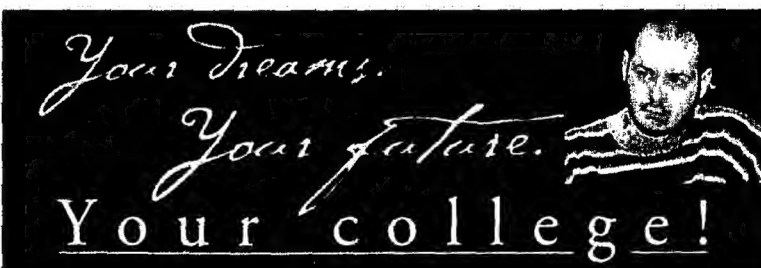 Your dreams.
Your future.
Your college!